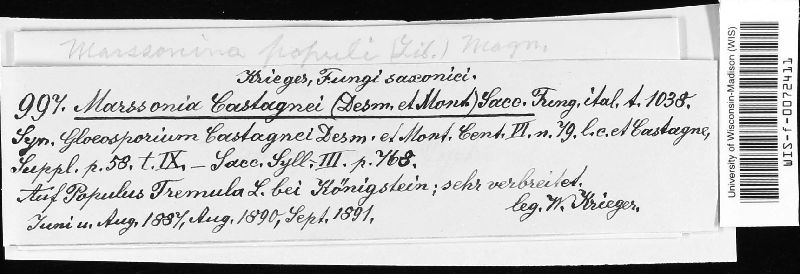 Marssonina populi (Lib.) Magn.
Krieger, Fungi saxonici.
997. Marssonia Castagnei (Desm. et Mont.) Sacc. Fung. ital. t. 1038.
Syn. Gloeosporium Castagnei Desm. et Mont. Cent. VI. n. 79. l. c. et Castagne,
Suppl. p. 58. t. IX. – Sacc. Syll. III. p. 768.
Auf Populus Tremula L. bei Königstein; sehr verbreitet.
Juni u. Aug. 1887, Aug. 1890, Sept. 1891.
leg. W. Krieger.
University of Wisconsin-Madison (WIS)
WIS-f-0072411